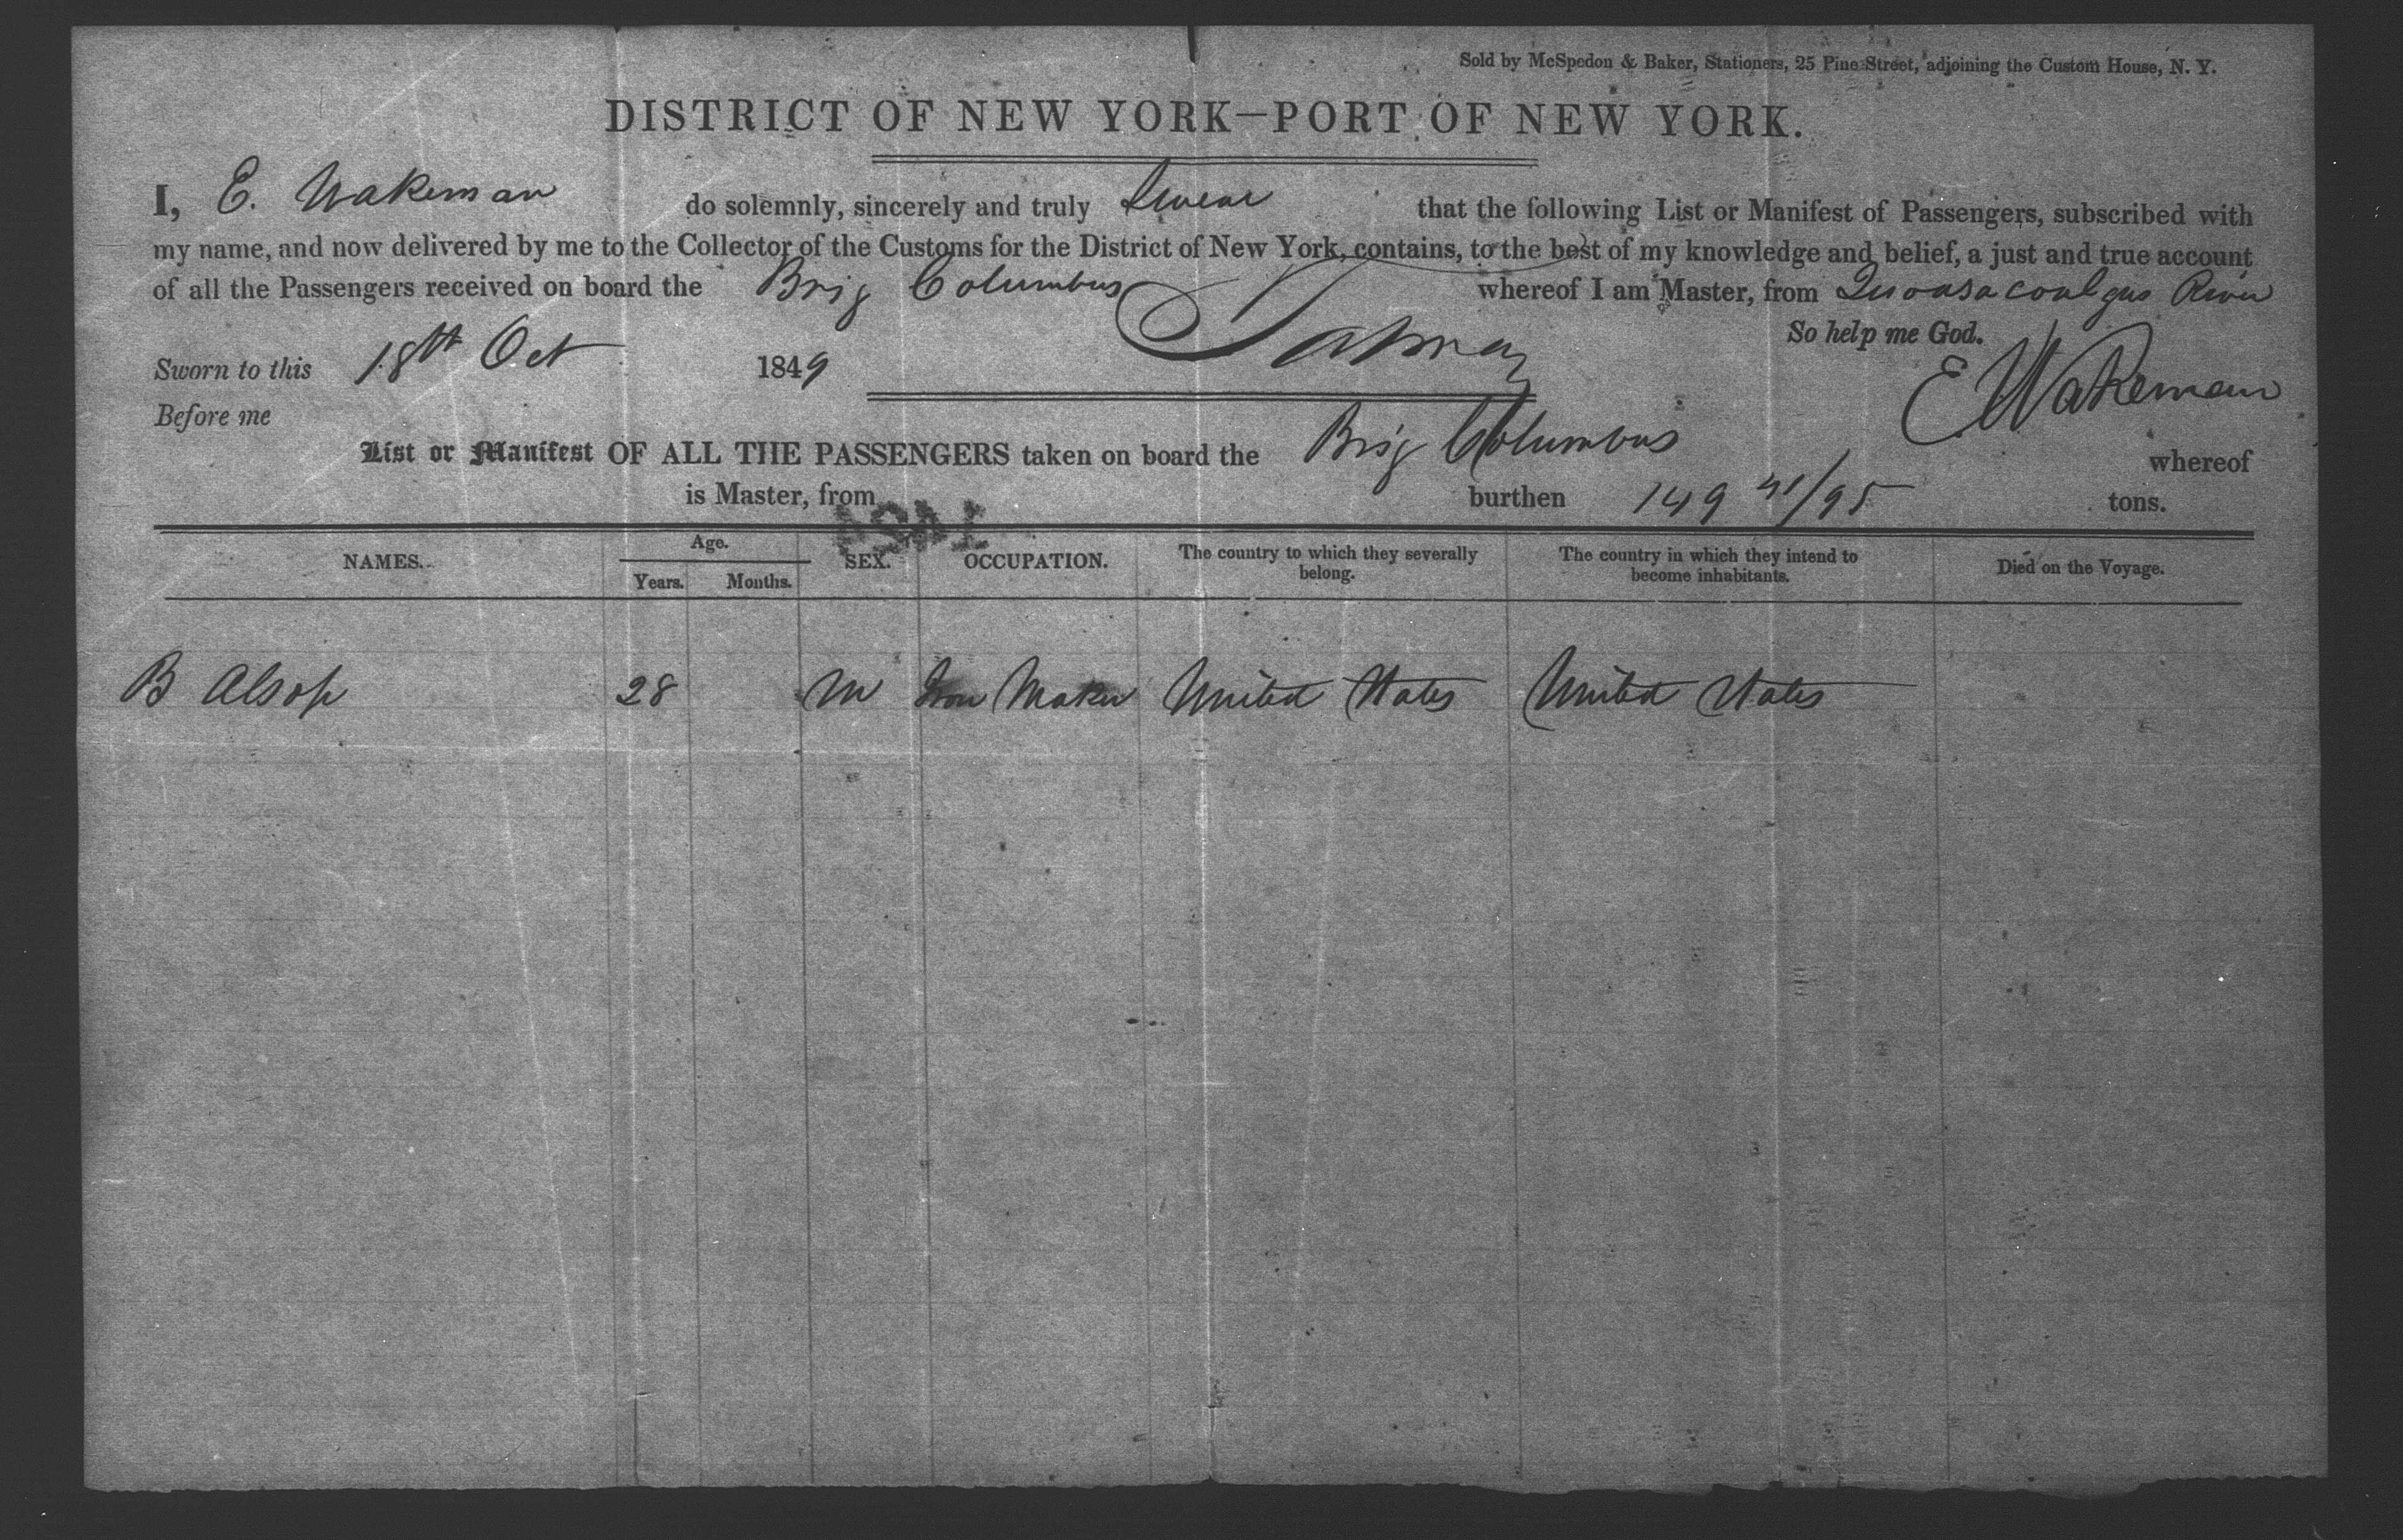 Sold by McSpedon & Baker, Stationers, 25 Pine Street, adjoining the Custom House, N. Y.
DISTRICT OF NEW YORK—PORT OF NEW YORK.
I, E. Wakeman do solemnly, sincerely and truly Swear that the following List or Manifest of Passengers, subscribed with
my name, and now delivered by me to the Collector of the Customs for the District of New York, contains, to the best of my knowledge and belief, a just and true account
of all the Passengers received on board the Brig Columbus whereof I am Master, from River
So help me God.
Sworn to this 18th Oct 1849
E Wakeman
Before me
List or Manifest OF ALL THE PASSENGERS taken on board the Brig Columbus whereof
is Master, from burthen 149 41/95 tons.
NAMES. Age. Years. Months. SEX. OCCUPATION. The country to which they severally belong. The country in which they intend to become inhabitants. Died on the Voyage.
B Alsop 28 M Maker United States United States